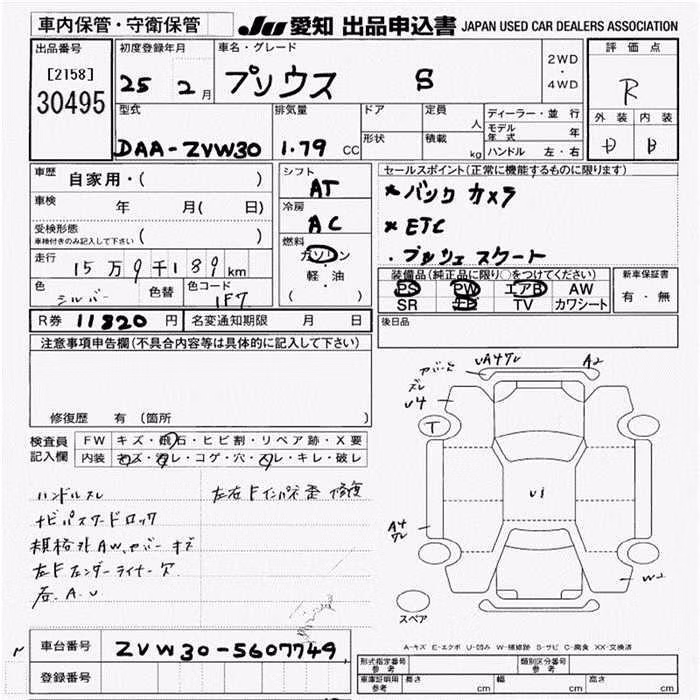 車内保管・守衛保管
JU 愛知 出品申込書 JAPAN USED CAR DEALERS ASSOCIATION
出品番号
[2158]
30495
初度登録年月
25 2月
車名・グレード
プリウス S
2WD
・
4WD
評価点
R
外装 内装
D B
型式
DAA-ZVW30
排気量
1.79 CC
ドア
形状
定員 人
積載 kg
ディーラー・並行
モデル年式 年
ハンドル 左・右
車歴 自家用・( )
車検 年 月( 日)
受検形態
車検付きのみ記入して下さい ( )
走行 15万9千189km
色 シルバー 色替
色コード 1F7
シフト
AT
冷房
AC
燃料
ガソリン
軽・油
( )
セールスポイント(正常に機能するものに限ります)
*バックカメラ
*ETC
・プッシュスタート
装備品(純正品に限り○をつけてください)
PS PW エアB AW
SR ナビ TV カワシート
新車保証書
有・無
R券 11820円 名変通知期限 月 日
後日品
注意事項申告欄(不具合内容等は具体的に記入して下さい)
修復歴 有 (箇所
検査員
記入欄
FW キズ・飛石・ヒビ割・リペア跡・X要
内装 キズ・汚レ・コゲ・穴・スレ・キレ・破レ
ハンドルスレ
ナビパスワードロック
規格外AW、カバーキズ
左Fフェンダーライナー欠
左右Fインパネ歪 修復
UA4ワレ
A2
カバー
ズレ
U4
T
U1
A4
W2
スペア
A-キズ E-エクボ U-凹み W-補修跡 S-サビ C-腐食 XX-交換済
車台番号 ZVW30-5607749
登録番号
形式指定番号
参考
類別区分番号
参考
車庫証明用
参考
長さ cm
幅 cm
高さ cm